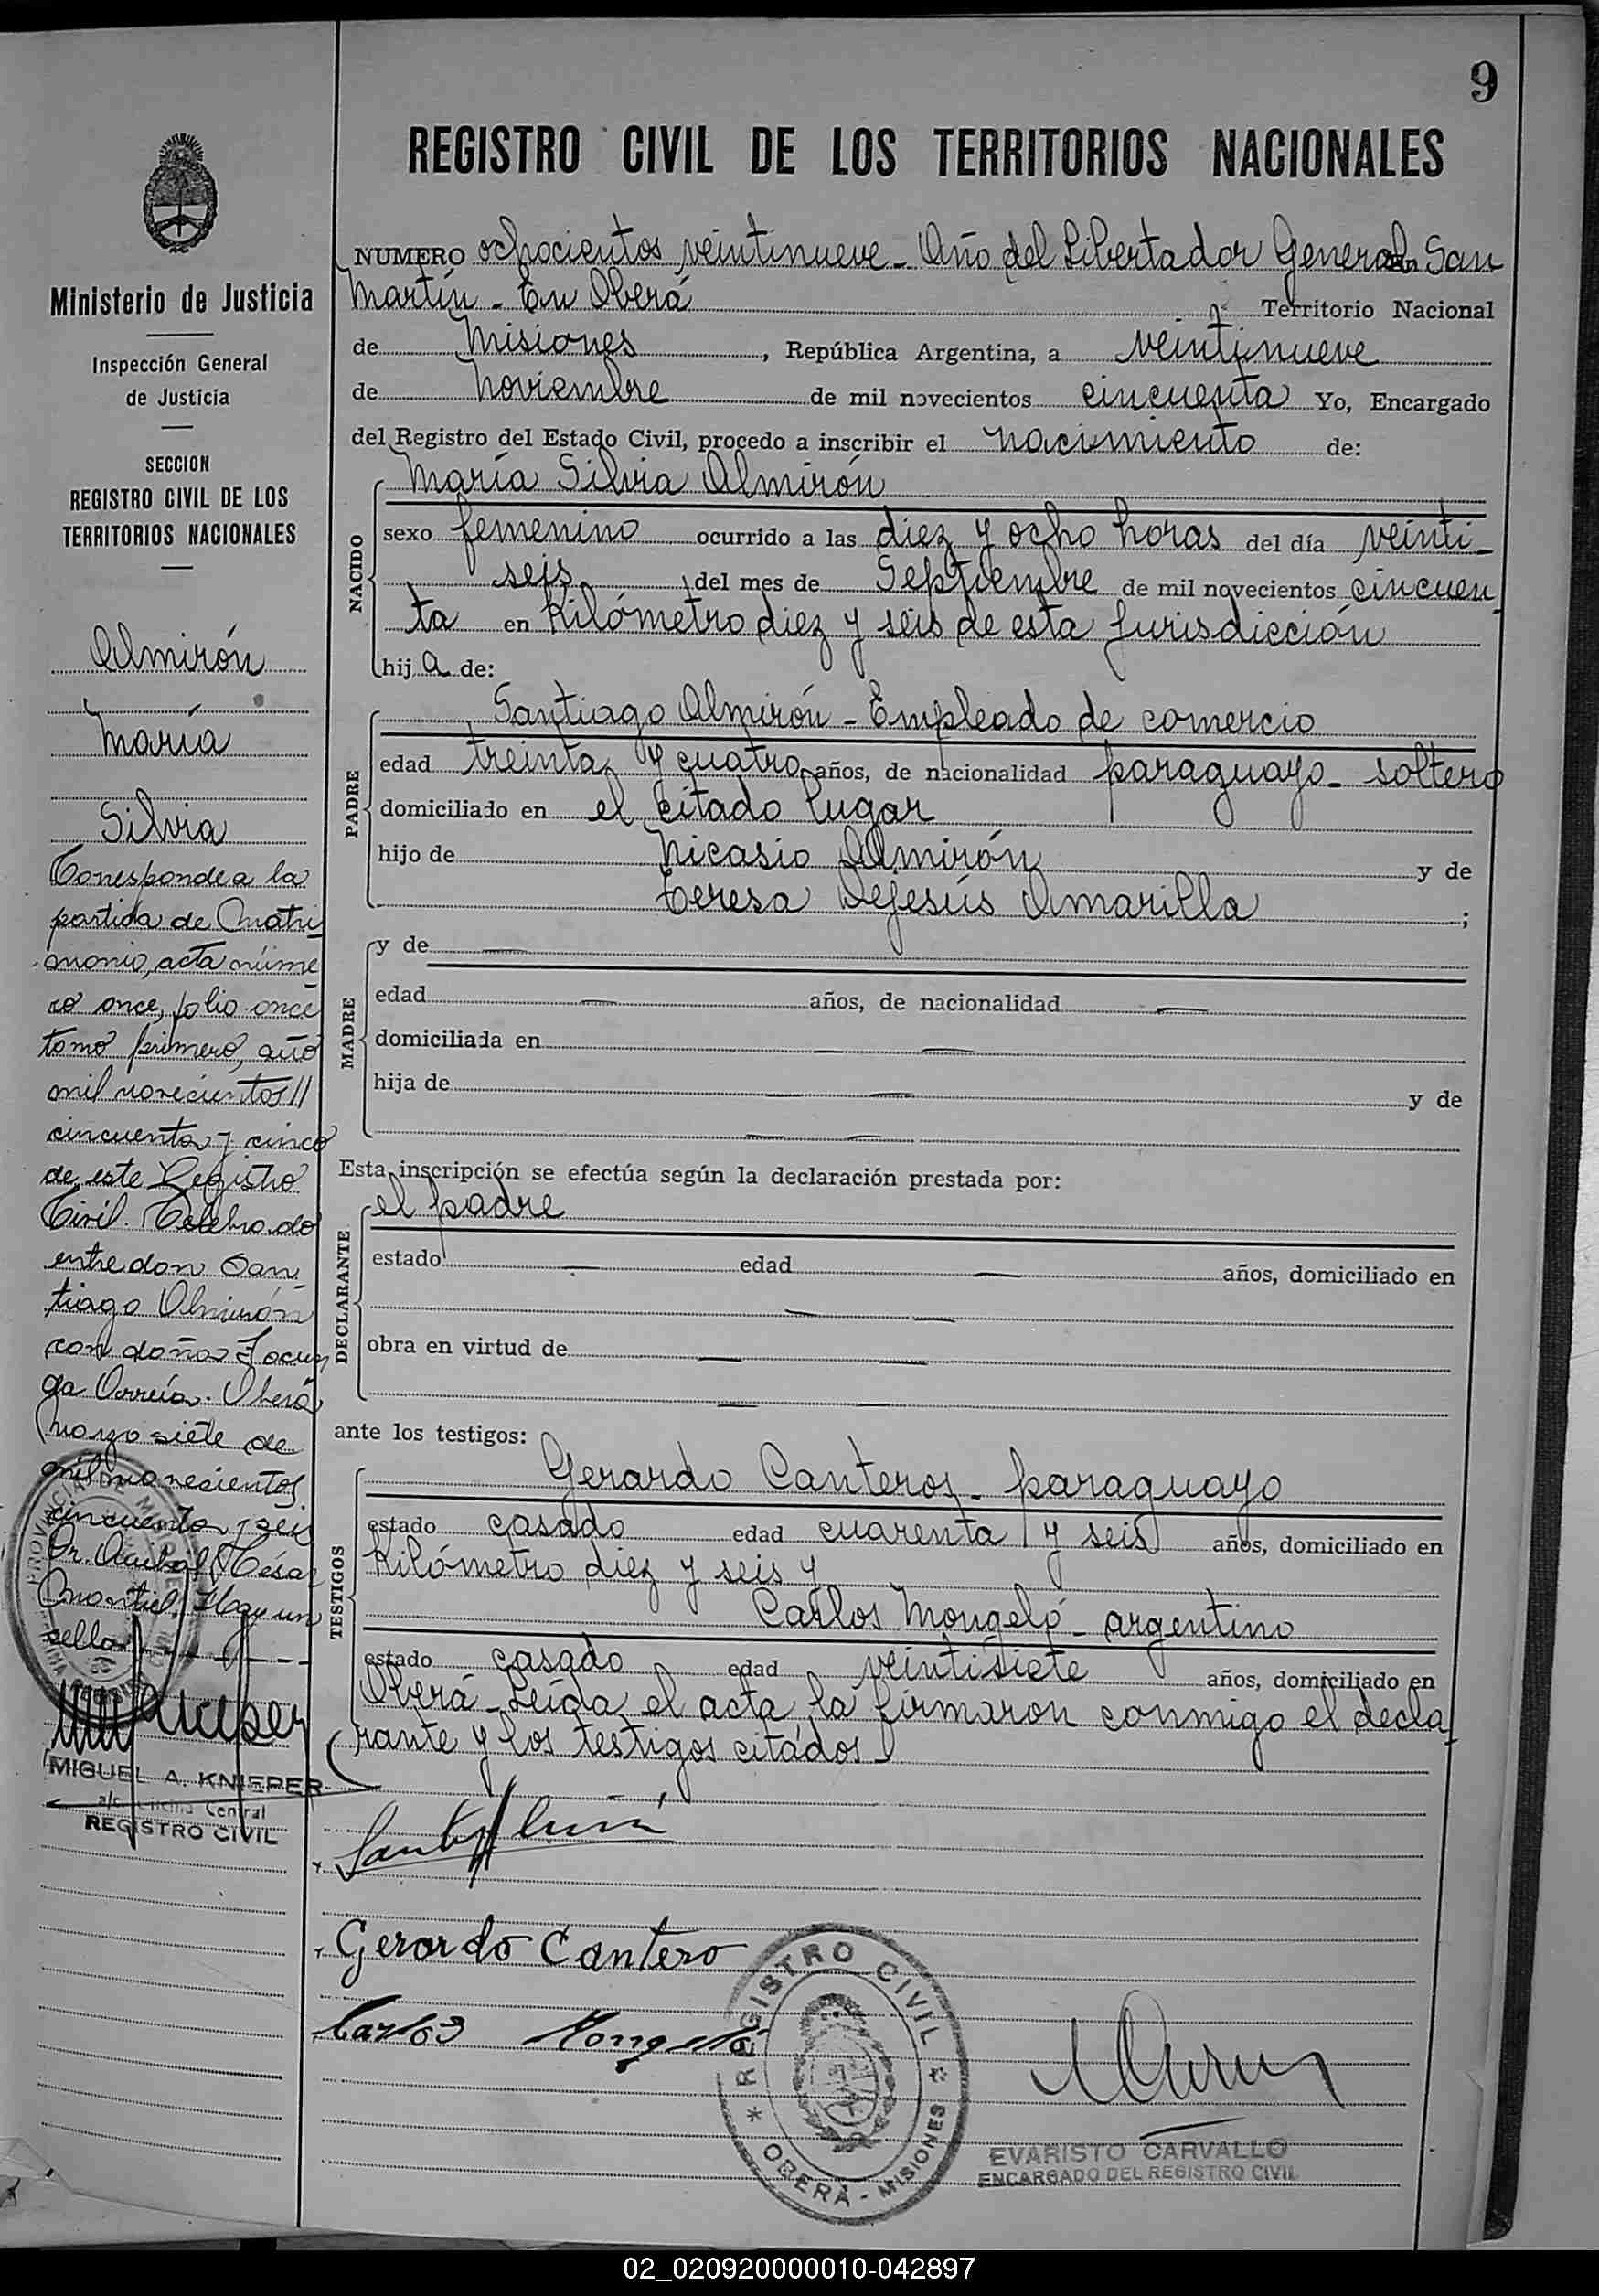 9
REGISTRO CIVIL DE LOS TERRITORIOS NACIONALES
Ministerio de Justicia
Inspección General
de Justicia
SECCION
REGISTRO CIVIL DE LOS
TERRITORIOS NACIONALES
Almirón
María
Silvia
Corresponde a la
partida de Matri
monio, acta núme
ro once, folio once
tomo primero, año
mil novecientos //
cincuenta y cinco
de este Registro
Civil. Celebrado
entre don San
tiago Almirón
con doña
Correía. Oberá
marzo siete de
mil novecientos
cincuenta y seis
Dr. César
Montiel. Hay un
sello
MIGUEL A. KNIEPER
a/c Oficina Central
REGISTRO CIVIL
NUMERO ochocientos veintinueve - Año del Libertador General San
Martín - En Oberá Territorio Nacional
de Misiones, República Argentina, a veintinueve
de Noviembre de mil novecientos cincuenta Yo, Encargado
del Registro del Estado Civil, procedo a inscribir el nacimiento de:
NACIDO
María Silvia Almirón
sexo femenino ocurrido a las diez y ocho horas del día veinti-
seis del mes de Septiembre de mil novecientos cincuen
ta en Kilómetro diez y seis de esta jurisdicción
hija de:
PADRE
Santiago Almirón - Empleado de comercio
edad treinta y cuatro años, de nacionalidad paraguayo - soltero
domiciliado en el citado lugar
hijo de Nicasio Almirón y de
Teresa Dejesús Amarilla ;
MADRE
y de —
edad — años, de nacionalidad —
domiciliada en — —
hija de — — y de
— —
Esta inscripción se efectúa según la declaración prestada por:
DECLARANTE
el padre
estado — edad — años, domiciliado en
— —
obra en virtud de — —
— —
ante los testigos:
TESTIGOS
Gerardo Canteros - paraguayo
estado casado edad cuarenta y seis años, domiciliado en
Kilómetro diez y seis y
Carlos Mongeló - argentino
estado casado edad veintisiete años, domiciliado en
Oberá - Leída el acta la firmaron conmigo el decla
rante y los testigos citados
Gerardo Cantero
Carlos Mongeló
REGISTRO CIVIL
* OBERÁ - MISIONES *
EVARISTO CARVALLO
ENCARGADO DEL REGISTRO CIVIL
02_020920000010-042897